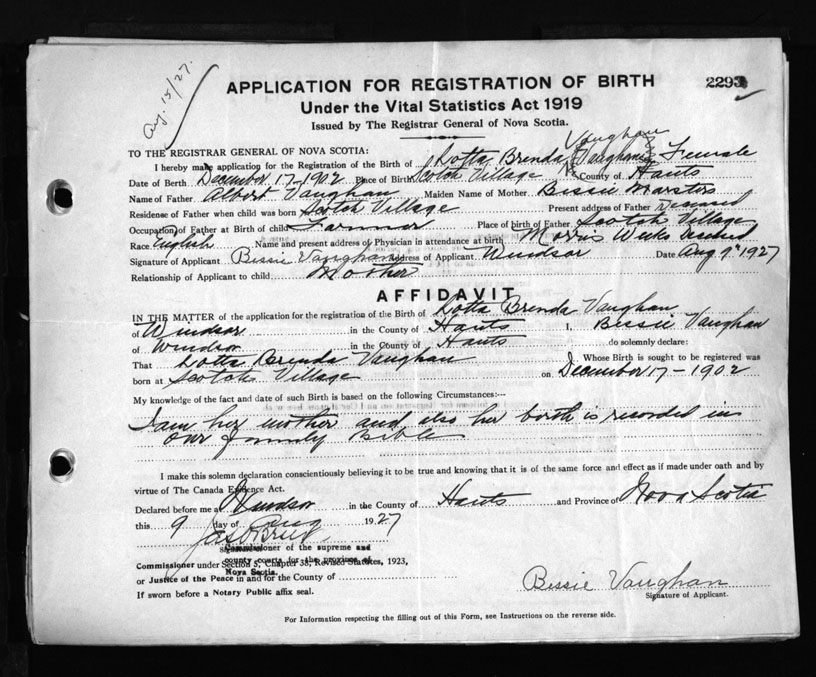 Aug. 15/27.
2293
APPLICATION FOR REGISTRATION OF BIRTH
Under the Vital Statistics Act 1919
Issued by The Registrar General of Nova Scotia.
TO THE REGISTRAR GENERAL OF NOVA SCOTIA:
Vaughan
I hereby make application for the Registration of the Birth of Lotta Brenda Vaughan Female
Date of Birth December 17-1902 Place of Birth Scotch Village County of Hants
Name of Father Albert Vaughan Maiden Name of Mother Bessie Marsters
Residense of Father when child was born Scotch Village Present address of Father Deceased
Occupation of Father at Birth of child Farmer Place of birth of Father Scotch Village
Race English Name and present address of Physician in attendance at birth Morris Weeks Deceased
Signature of Applicant Bessie Vaughan Address of Applicant Windsor Date Aug 9th 1927
Relationship of Applicant to child Mother
AFFIDAVIT
IN THE MATTER of the application for the registration of the Birth of Lotta Brenda Vaughan
of Windsor in the County of Hants I, Bessie Vaughan
of Windsor in the County of Hants do solemnly declare:
That Lotta Brenda Vaughan Whose Birth is sought to be registered was
born at Scotch Village on December 17-1902
My knowledge of the fact and date of such Birth is based on the following Circumstances:--
I am her mother and also her birth is recorded in
our family Bible
I make this solemn declaration conscientiously believing it to be true and knowing that it is of the same force and effect as if made under oath and by
virtue of The Canada Evidence Act.
Declared before me at Windsor in the County of Hants and Province of Nova Scotia
this 9 day of Aug 1927
Commissioner of the supreme and
county courts for the province of
Nova Scotia.
Commissioner under Section 5, Chapter 38, Revised Statutes, 1923,
or Justice of the Peace in and for the County of
If sworn before a Notary Public affix seal.
Bessie Vaughan
Signature of Applicant.
For Information respecting the filling out of this Form, see Instructions on the reverse side.